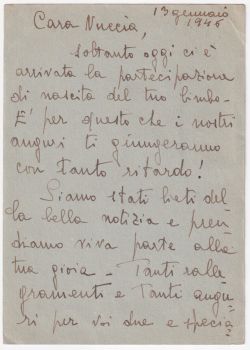 13 gennaio
1946
Cara Nuccia,
soltanto oggi ci è
arrivata la partecipazione
di nascita del tuo bimbo.
E' per questo che i nostri
auguri ti giungeranno
con tanto ritardo!
Siamo stati lieti del
la bella notizia e pren
diamo viva parte alla
tua gioia - Tanti ralle
gramenti e tanti augu=
ri per voi due e specia=